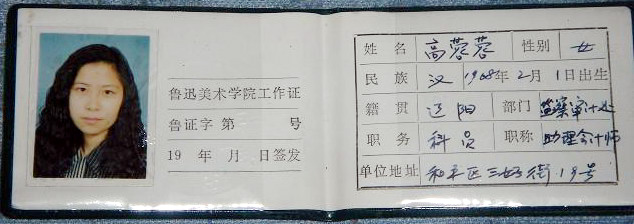 鲁迅美术学院工作证
鲁证字 第 号
19 年 月 日签发
姓名 高蓉蓉 性别 女
民族 汉 1968年2月1日出生
籍贯 辽阳 部门 监察审计处
职务 科员 职称 助理会计师
单位地址 和平区三好街19号